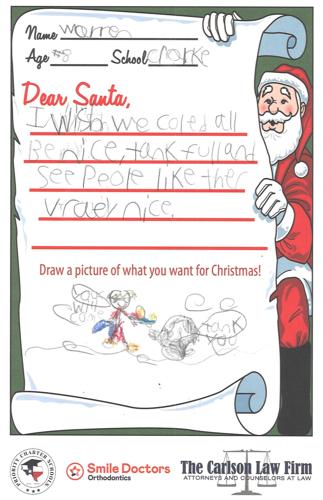 Name Warren
Age #8 School Clarke
Dear Santa,
I Wish we coled all
Be nice, tank full and
See PeoPle like ther
Vraey nice
Draw a picture of what you want for Christmas!
tank
you
PRIORITY CHARTER SCHOOLS
Smile Doctors
Orthodontics
The Carlson Law Firm
ATTORNEYS AND COUNSELORS AT LAW